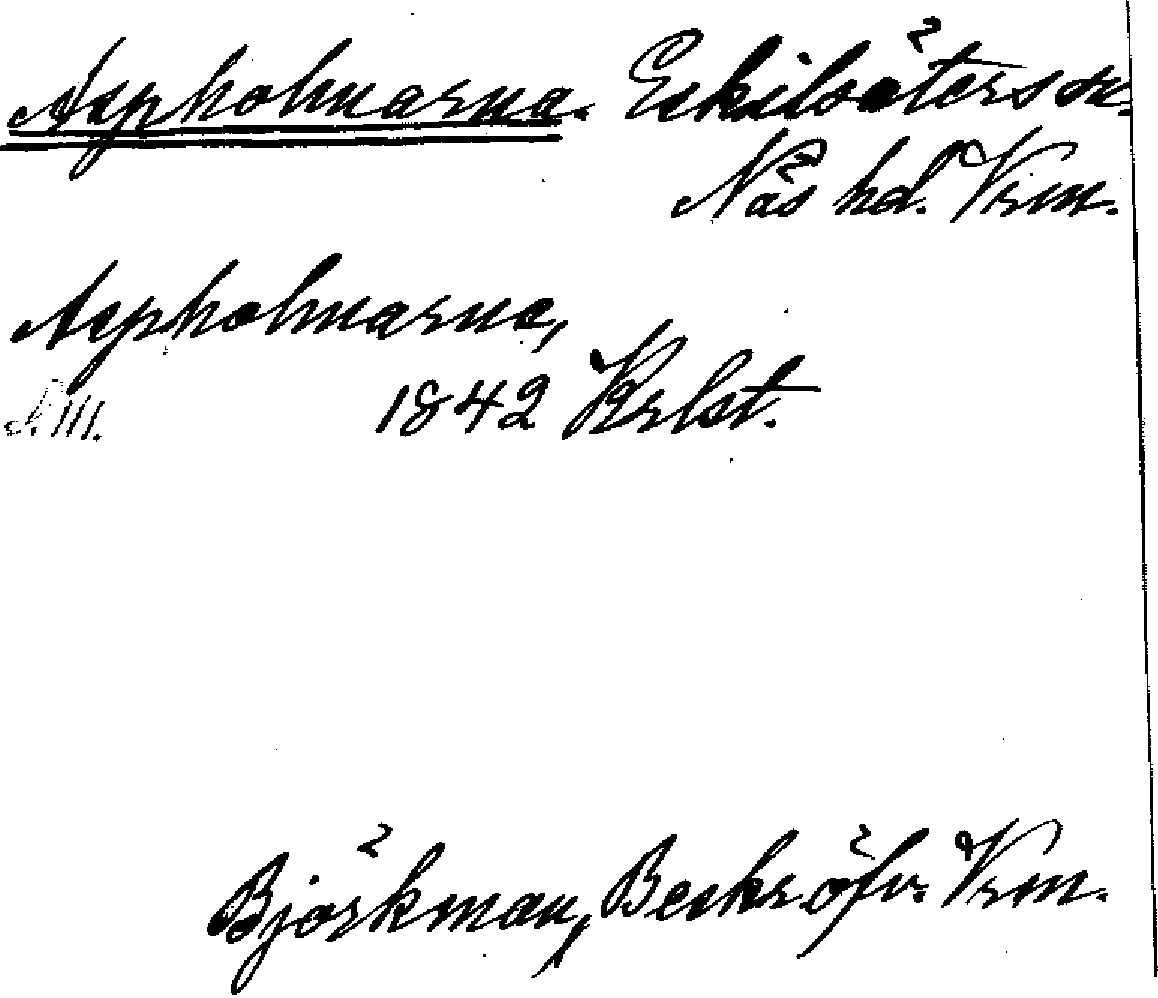 Aspholmarna. Eskilsäters sn.
Näs hd. Vrm.
Aspholmarna,
S. III. 1842 Krlst.
Björkman, Beskr. öfv. Vrm.